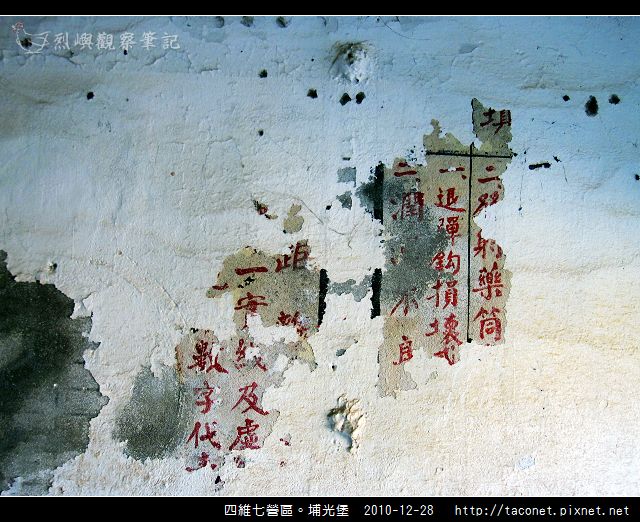 烈嶼觀察筆記
填
二、
射藥筒
一、退彈鈎損壞
二、潤
不良
距
一、安
線及虛
數字代
四維七營區。埔光堡 2010-12-28 http://taconet.pixnet.net